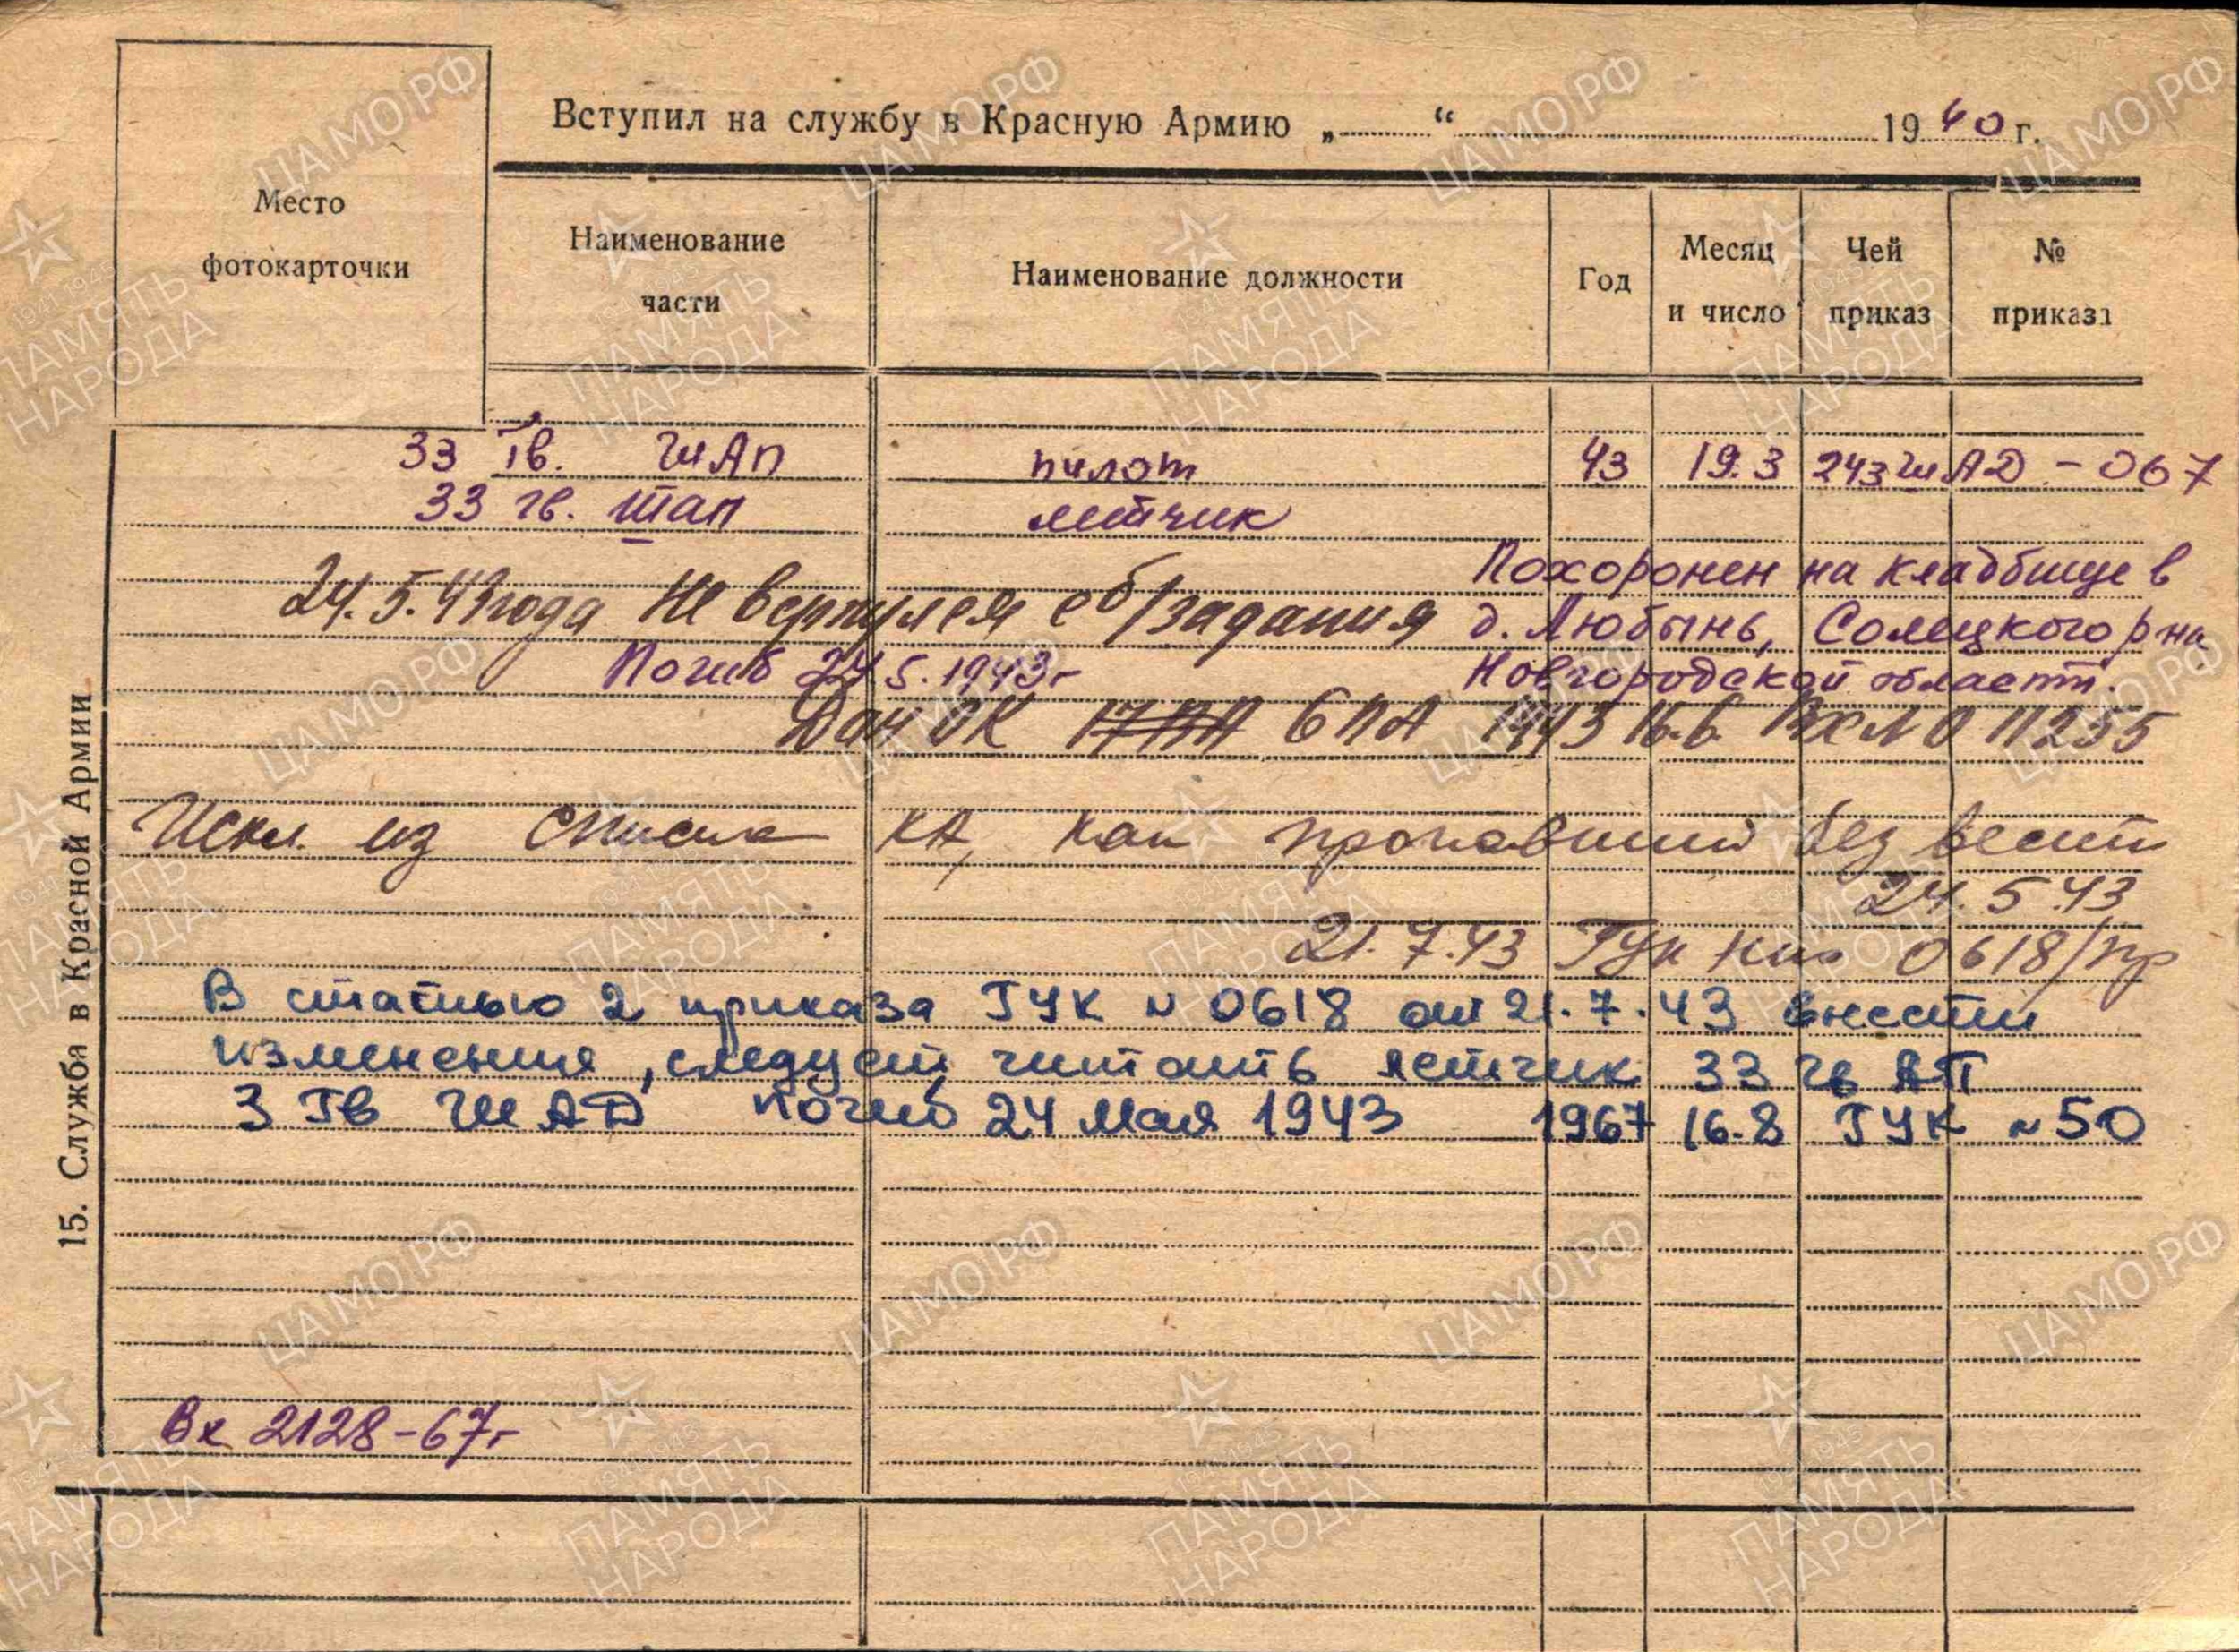 Вступил на службу в Красную Армию „ “ 1940 г.
Место фотокарточки
Наименование части
Наименование должности
Год
Месяц и число
Чей приказ
№ приказа
33 Гв. ШАП пилот 43 19.3 243 ШАД - 067
33 гв. шап летчик
Похоронен на кладбище в
24.5.43 года Не вернулся с б/задания
д. Любынь, Солецкого р-на
Погиб 24.5.1943 г
Новгородской области.
Дан ОК 6 ПА 1943 16.6. 11255
Искл. из списка КА, как пропавший без вести
24.5.43
21.7.43 ГУК НКО 0618/пр
В статью 2 приказа ГУК № 0618 от 21.7.43 внести
изменения, следует читать летчик 33 гв АП
3 Гв ШАД погиб 24 мая 1943 1967 16.8 ГУК № 50
Вх 2128-67г
15. Служба в Красной Армии
ЦАМО.РФ
1941-1945
ПАМЯТЬ НАРОДА